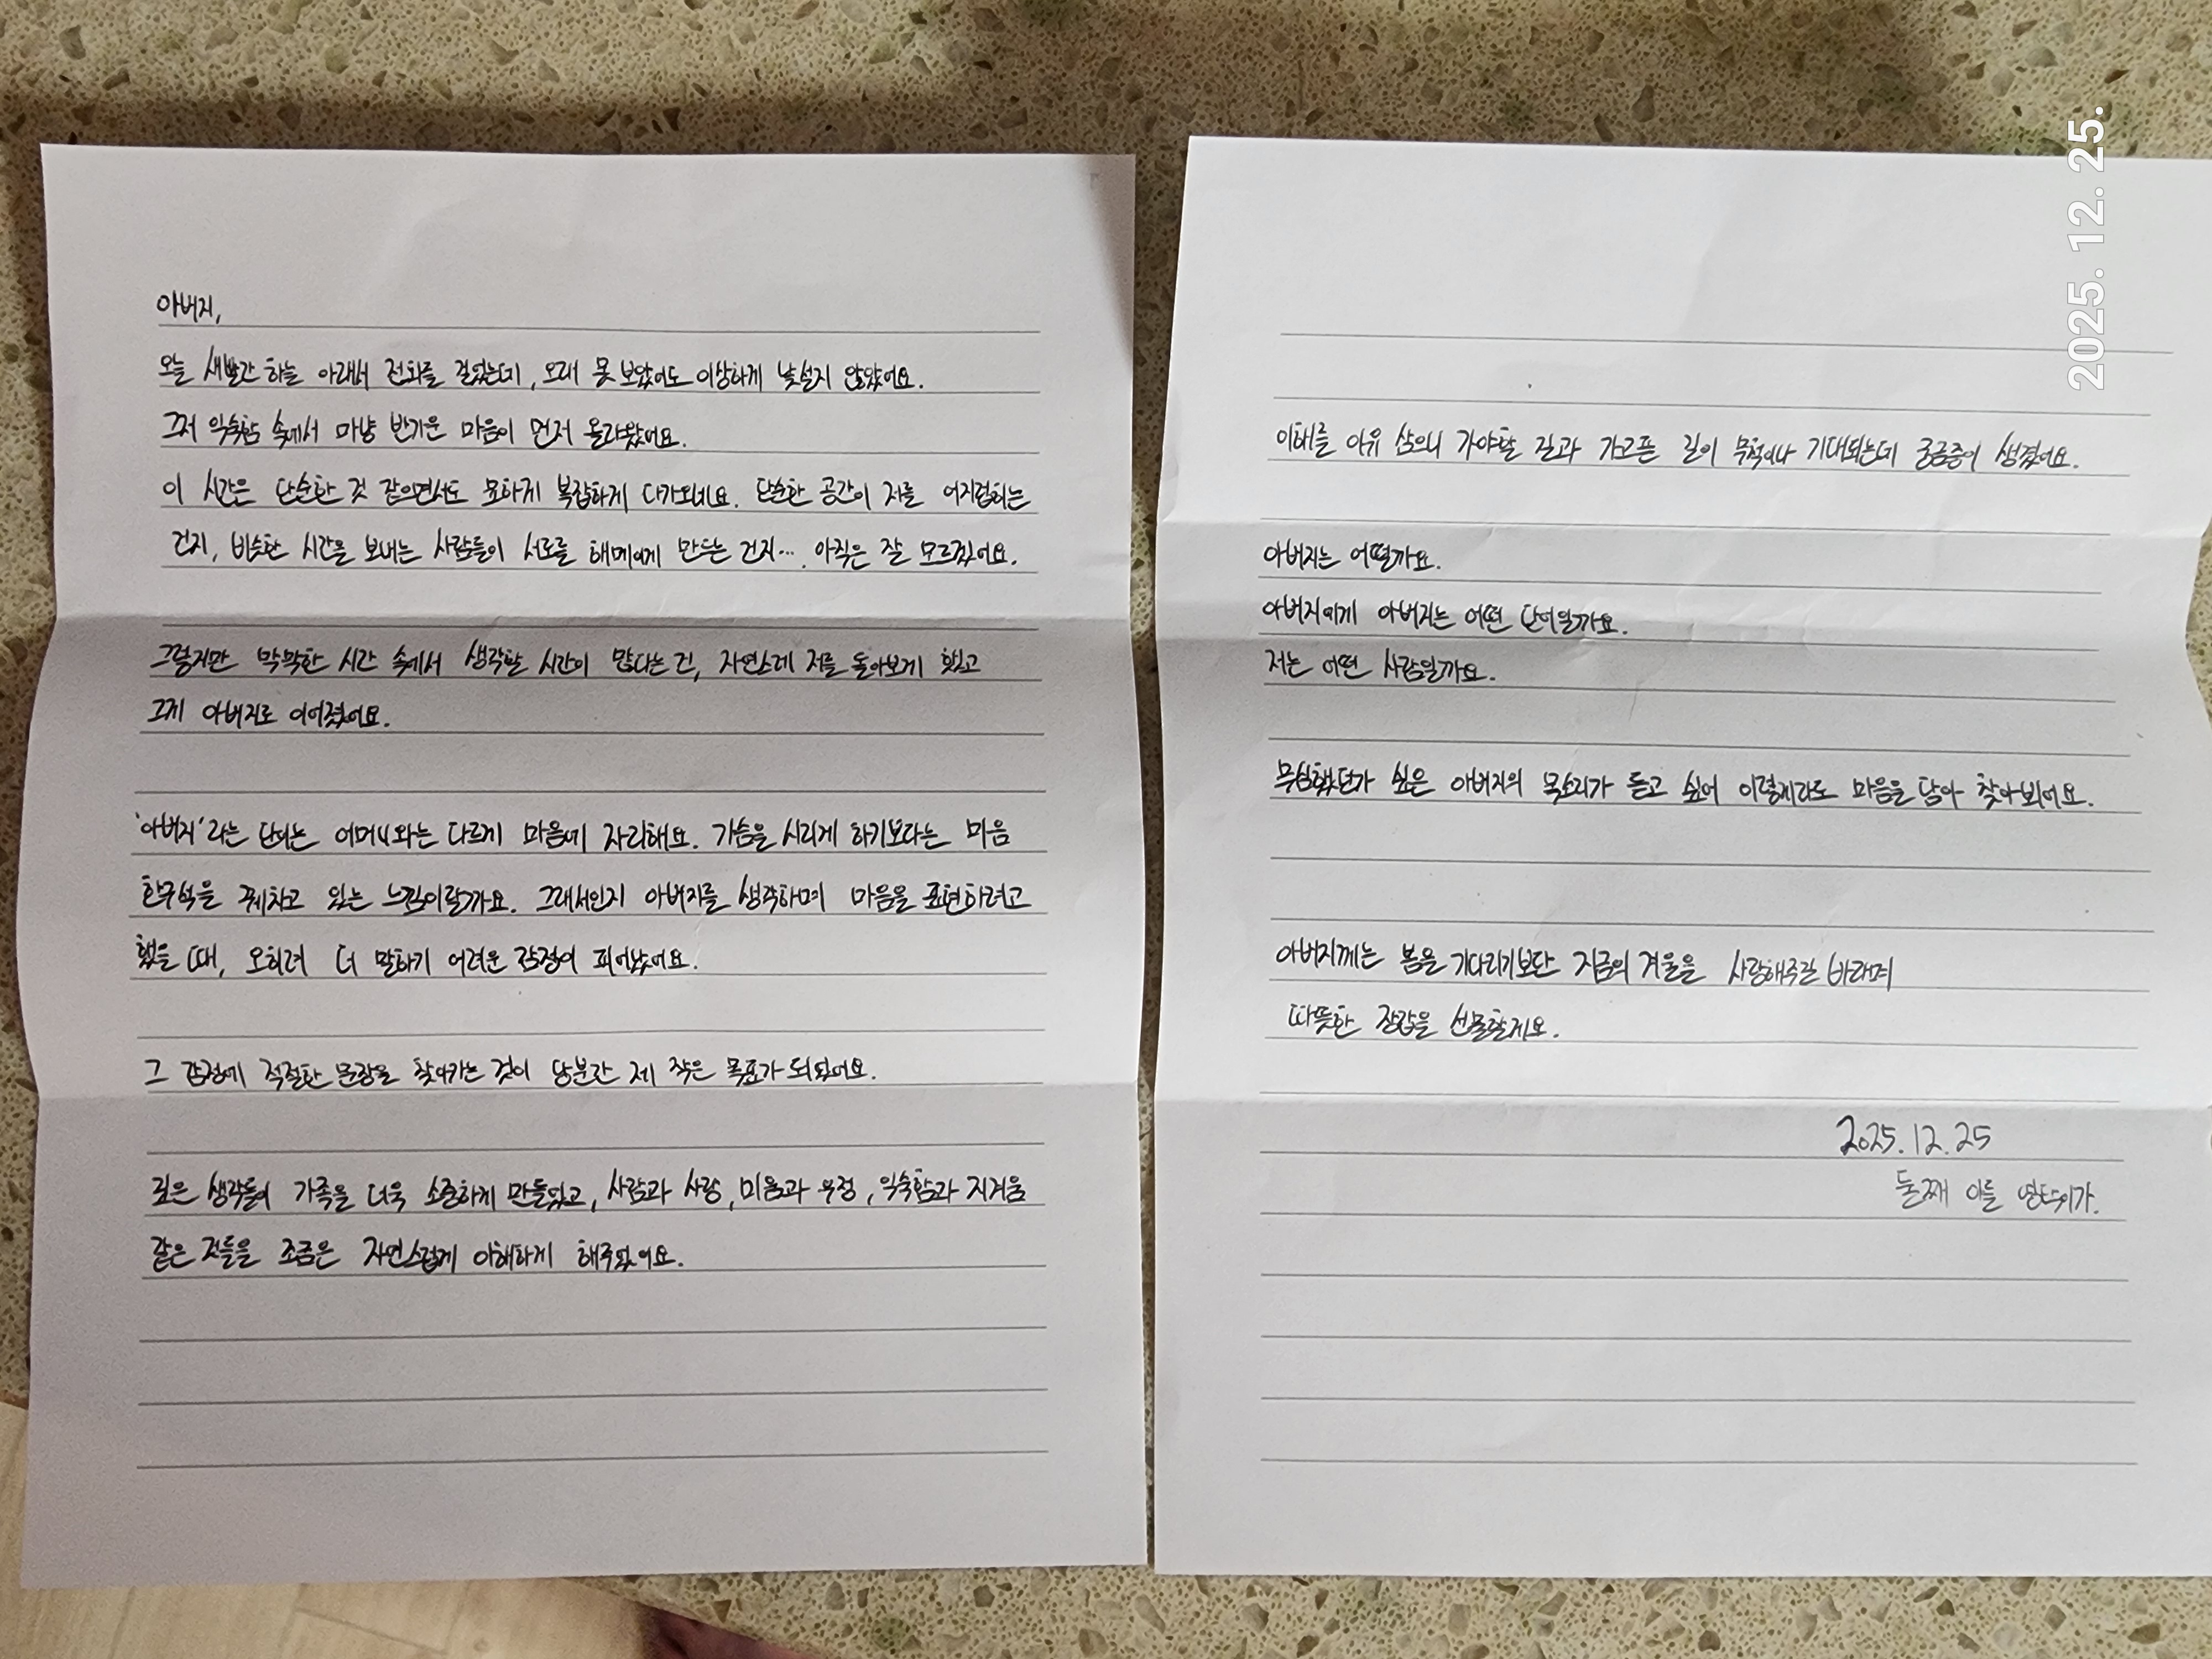 아버지,
오늘 새빨간 하늘 아래서 전화를 걸었는데, 오래 못 보았어도 이상하게 낯설지 않았어요.
그저 익숙함 속에서 마냥 반가운 마음이 먼저 올라왔어요.
이 시간은 단순한 것 같으면서도 묘하게 복잡하게 다가오네요. 단순한 공간이 저를 어지럽히는
건지, 비슷한 시간을 보내는 사람들이 서로를 헤매이게 만드는 건지... 아직은 잘 모르겠어요.
그렇지만 막막한 시간 속에서 생각할 시간이 많다는 건, 자연스레 저를 돌아보게 했고
그게 아버지로 이어졌어요.
'아버지'라는 단어는 어머니와는 다르게 마음에 자리해요. 가슴을 시리게 하기보다는 마음
한구석을 꿰차고 있는 느낌이랄까요. 그래서인지 아버지를 생각하며 마음을 표현하려고
했을 때, 오히려 더 말하기 어려운 감정이 피어났어요.
그 감정에 적절한 문장을 찾아가는 것이 당분간 제 작은 목표가 되었어요.
깊은 생각들이 가족을 더욱 소중하게 만들었고, 사람과 사랑, 미움과 우정, 익숙함과 지겨움
같은 것들을 조금은 자연스럽게 이해하게 해주었어요.
이해를 이유 삼으니 가야할 길과 가고픈 길이 무척이나 기대되는데 궁금증이 생겼어요.
아버지는 어떨까요.
아버지에게 아버지는 어떤 단어일까요.
저는 어떤 사람일까요.
무심했던가 싶은 아버지의 목소리가 듣고 싶어 이렇게라도 마음을 담아 찾아뵈어요.
아버지께는 봄을 기다리기보단 지금의 겨울을 사랑해주길 바래며
따뜻한 장갑을 선물할게요.
2025.12.25
둘째 아들
2025. 12. 25.